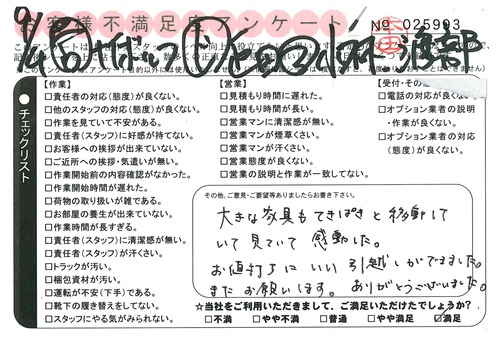 お客様不満足度アンケート
No 025993
チェックリスト
【作業】
□責任者の対応(態度)が良くない。
□他のスタッフの対応(態度)が良くない。
□作業を見ていて不安がある。
□責任者(スタッフ)に好感が持てない。
□お客様への挨拶が出来ていない。
□ご近所への挨拶・気遣いが無い。
□作業開始前の内容確認がなかった。
□作業開始時間が遅れた。
□荷物の取り扱いが雑である。
□お部屋の養生が出来ていない。
□作業時間が長すぎる。
□責任者(スタッフ)に清潔感が無い。
□責任者(スタッフ)が汗くさい。
□トラックが汚い。
□梱包資材が汚い。
□運転が不安(下手)である。
□靴下の履き替えをしていない。
□スタッフにやる気がみられない。
【営業】
□見積もり時間に遅れた。
□見積もり時間が長い。
□営業マンに清潔感が無い。
□営業マンが煙草くさい。
□営業マンが汗くさい。
□営業態度が良くない。
□営業の説明と作業が一致してない。
【受付・その他
□電話の対応が良くない。
□オプション業者の説明
・作業が良くない。
□オプション業者の対応
(態度)が良くない。
その他、ご意見・ご要望等ありましたらお書き下さい。
大きな家具もてきぱきと移動して
いて見ていて感動した。
お値打ちにいい引越しができました。
またお願いします。ありがとうございました。
☆当社をご利用いただきまして、ご満足いただけたでしょうか?
□不満 □やや不満 □普通 □やや満足 ☑満足